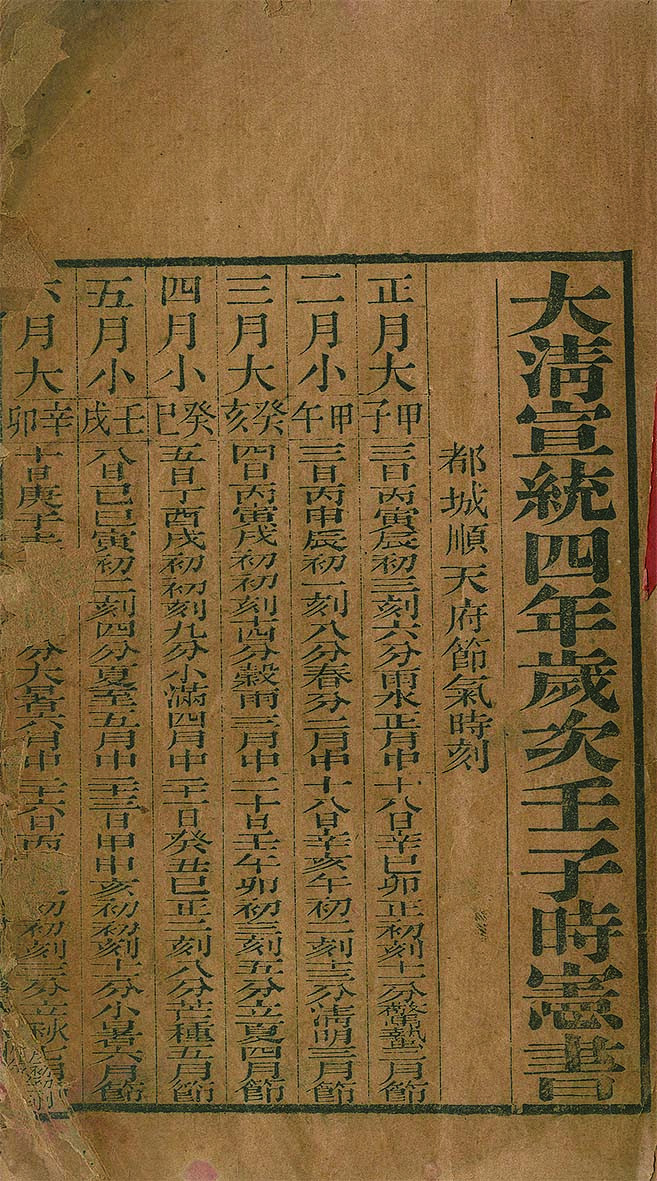 大淸宣統四年歲次壬子時憲書
都城順天府節氣時刻
正月大 甲子 三日丙寅辰初三刻六分雨水正月中 十八日辛巳卯正初刻十二分驚蟄二月節
二月小 甲午 三日丙申辰初一刻八分春分二月中 十八日辛亥午初二刻十三分淸明三月節
三月大 癸亥 四日丙寅戌初初刻十四分穀雨三月中 二十日壬午卯初三刻五分立夏四月節
四月小 癸巳 五日丁酉戌初初刻九分小滿四月中 二十一日癸丑巳正二刻八分芒種五月節
五月小 壬戌 八日己巳寅初二刻四分夏至五月中 二十三日甲申亥初初刻十一分小暑六月節
六月大 辛卯 十日庚子 分大暑六月中 二十六日丙 初初刻三分立秋七月